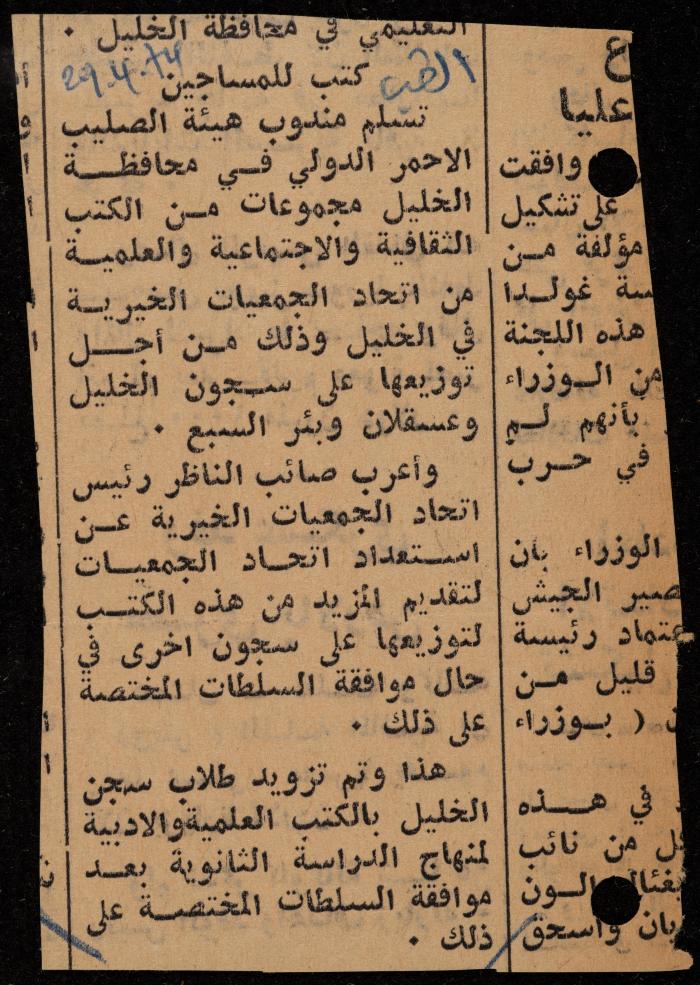 التعليمي في محافظة الخليل ٠
29.4.74
كتب للمساجين
تسلم مندوب هيئة الصليب
الاحمر الدولي فـي محافظـــة
الخليل مجموعات مـن الكتب
الثقافية والاجتماعية والعلميـة
من اتحاد الجمعيات الخيريـة
في الخليل وذلك مـن أجــل
توزيعها على سـجون الخليل
وعسقلان وبئر السبع ٠
وأعرب صائب الناظر رئيس
اتحاد الجمعيات الخيرية عـن
استعداد اتحـاد الجمعيـات
لتقديم المزيد من هذه الكتـب
لتوزيعها على سجون اخرى في
حال موافقة السلطات المختصة
على ذلك ٠
هذا وتم تزويد طلاب سجن
الخليل بالكتب العلمية والادبية
لمنهاج الدراسة الثانوية بعـد
موافقة السلطات المختصـة على
ذلك ٠
ع
عليا
وافقت
على تشكيل
مؤلفة مـن
سة غولـدا
هذه اللجنة
من الـوزراء
بأنهم لـم
في حـرب
الوزراء بان
صير الجيش
عتماد رئيسة
قليل مـن
ن ( بـوزراء
في هــذه
كل من نائب
يغئال الـون
بان واسحق